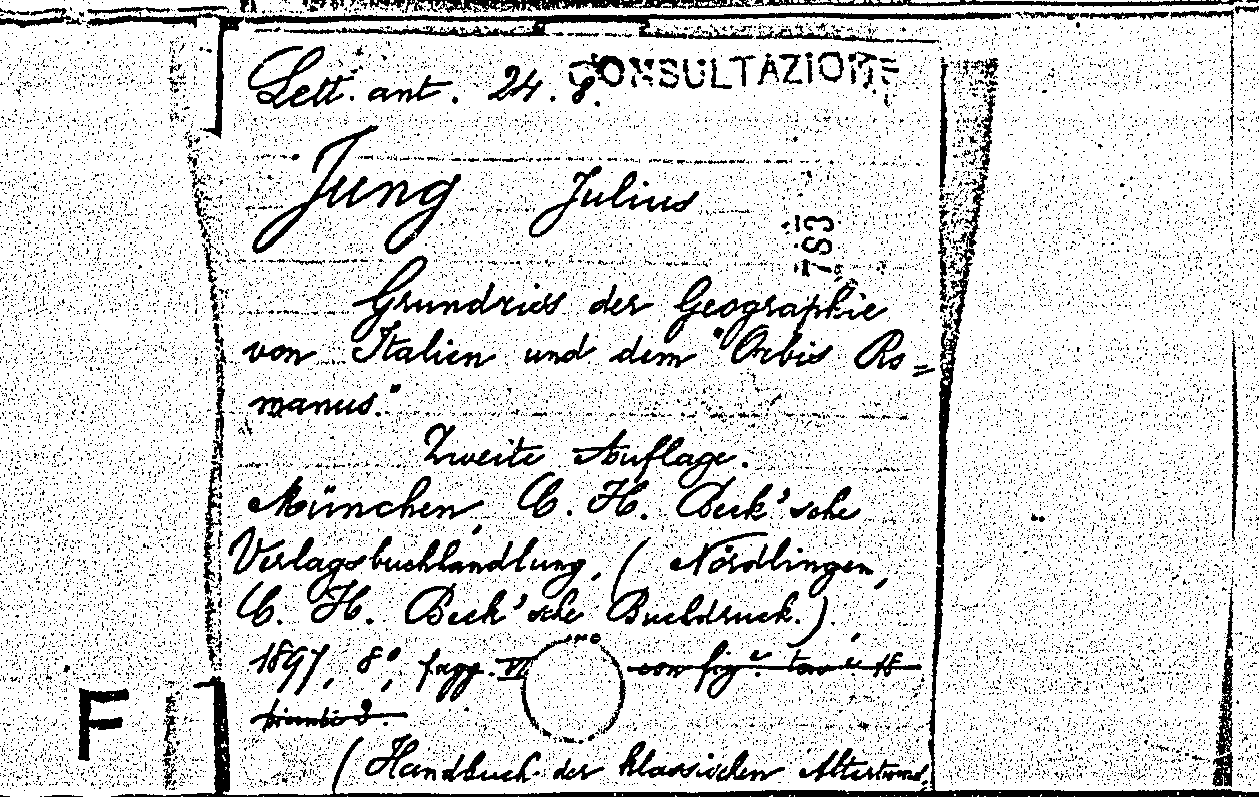 CONSULTAZIONE
Lett. ant. 24. 8.
Jung Julius
783
Grundriss der Geographie
von Italien und dem "Orbis Ro=
manus."
Zweite Auflage.
München, C. H. Beck'sche
Verlagsbuchhandlung, (Nördlingen,
C. H. Beck'sche Buchdruck.),
1897, 8°, pagg. VI
con fig.e tav.e 18
F
(Handbuch der klassischen Altertums